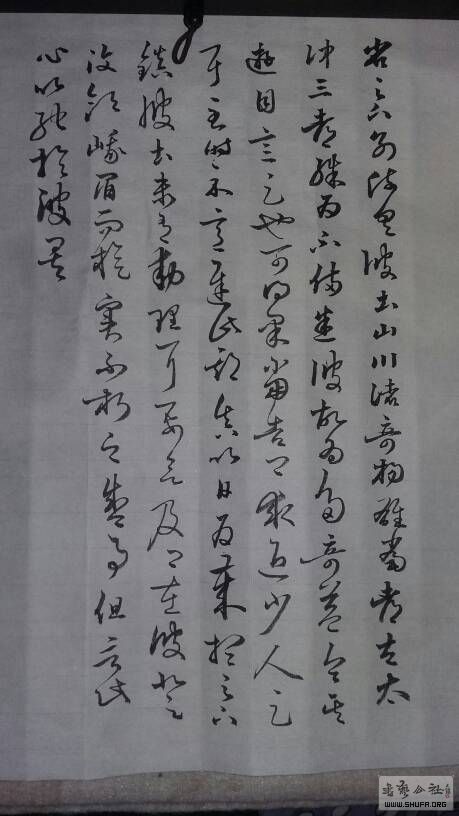 省足下别疏具彼土山川诸奇扬雄蜀都左太
冲三都殊为不备悉彼故为多奇益令其
游目意足也可得果当告卿求迎少人足
耳至时示意迟此期真以日为岁想足下
镇彼土未有动理耳要欲及卿在彼登
汶领峨眉而旋实不朽之盛事但言此
心以驰于彼矣
书艺公社
WWW.SHUFA.ORG